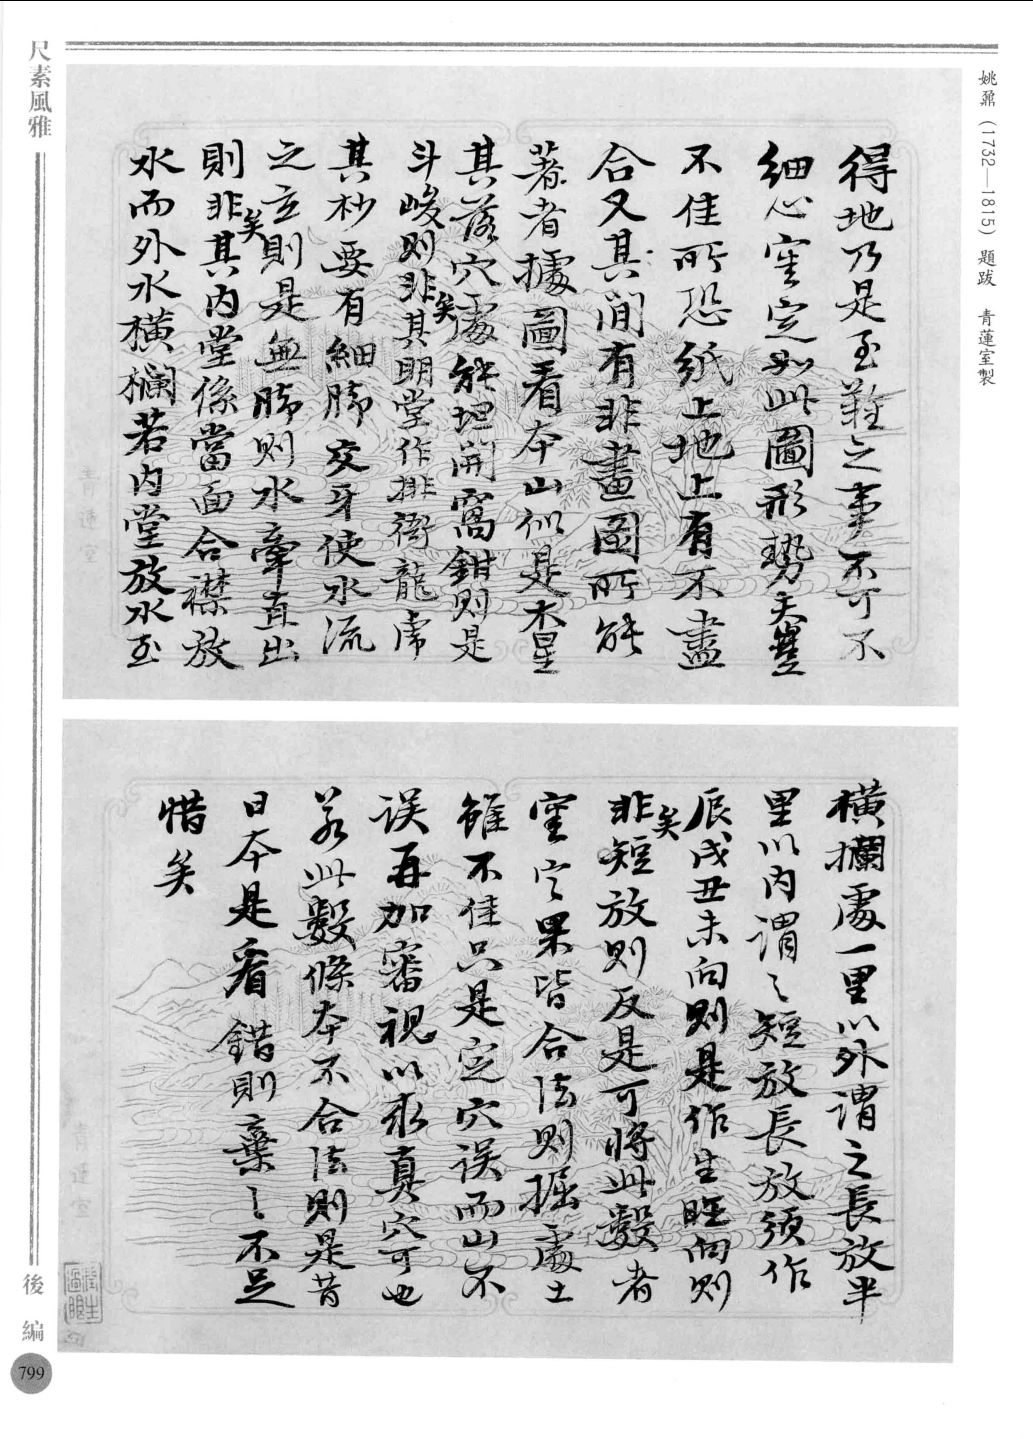 姚鼐（1732—1815）題跋　青蓮室製
得地乃是至難之事不可不
細心審定如此圖形勢夫豈
不佳所恐紙上地上有不盡
合又其間有非畫圖所能
著者據圖看本山似是木星
其落穴處能坦開窩鉗則是
斗峻則非矣其明堂作排衙龍虎
其杪要有細脚交牙使水流
之玄則是無脚則水牽直出
則非矣其內堂係當面合襟放
水而外水橫欄若內堂放水至
橫攔處一里以外謂之長放半
里以內謂之短放長放須作
辰戌丑未向則是作生旺向則
非矣短放則反是可將此數者
審定果皆合法則掘處土
雖不佳只是定穴誤而山不
誤再加審視以求真穴可也
若此數條本不合法則是昔
日本是看錯則棄之不足
惜矣
尺素風雅
後編
799